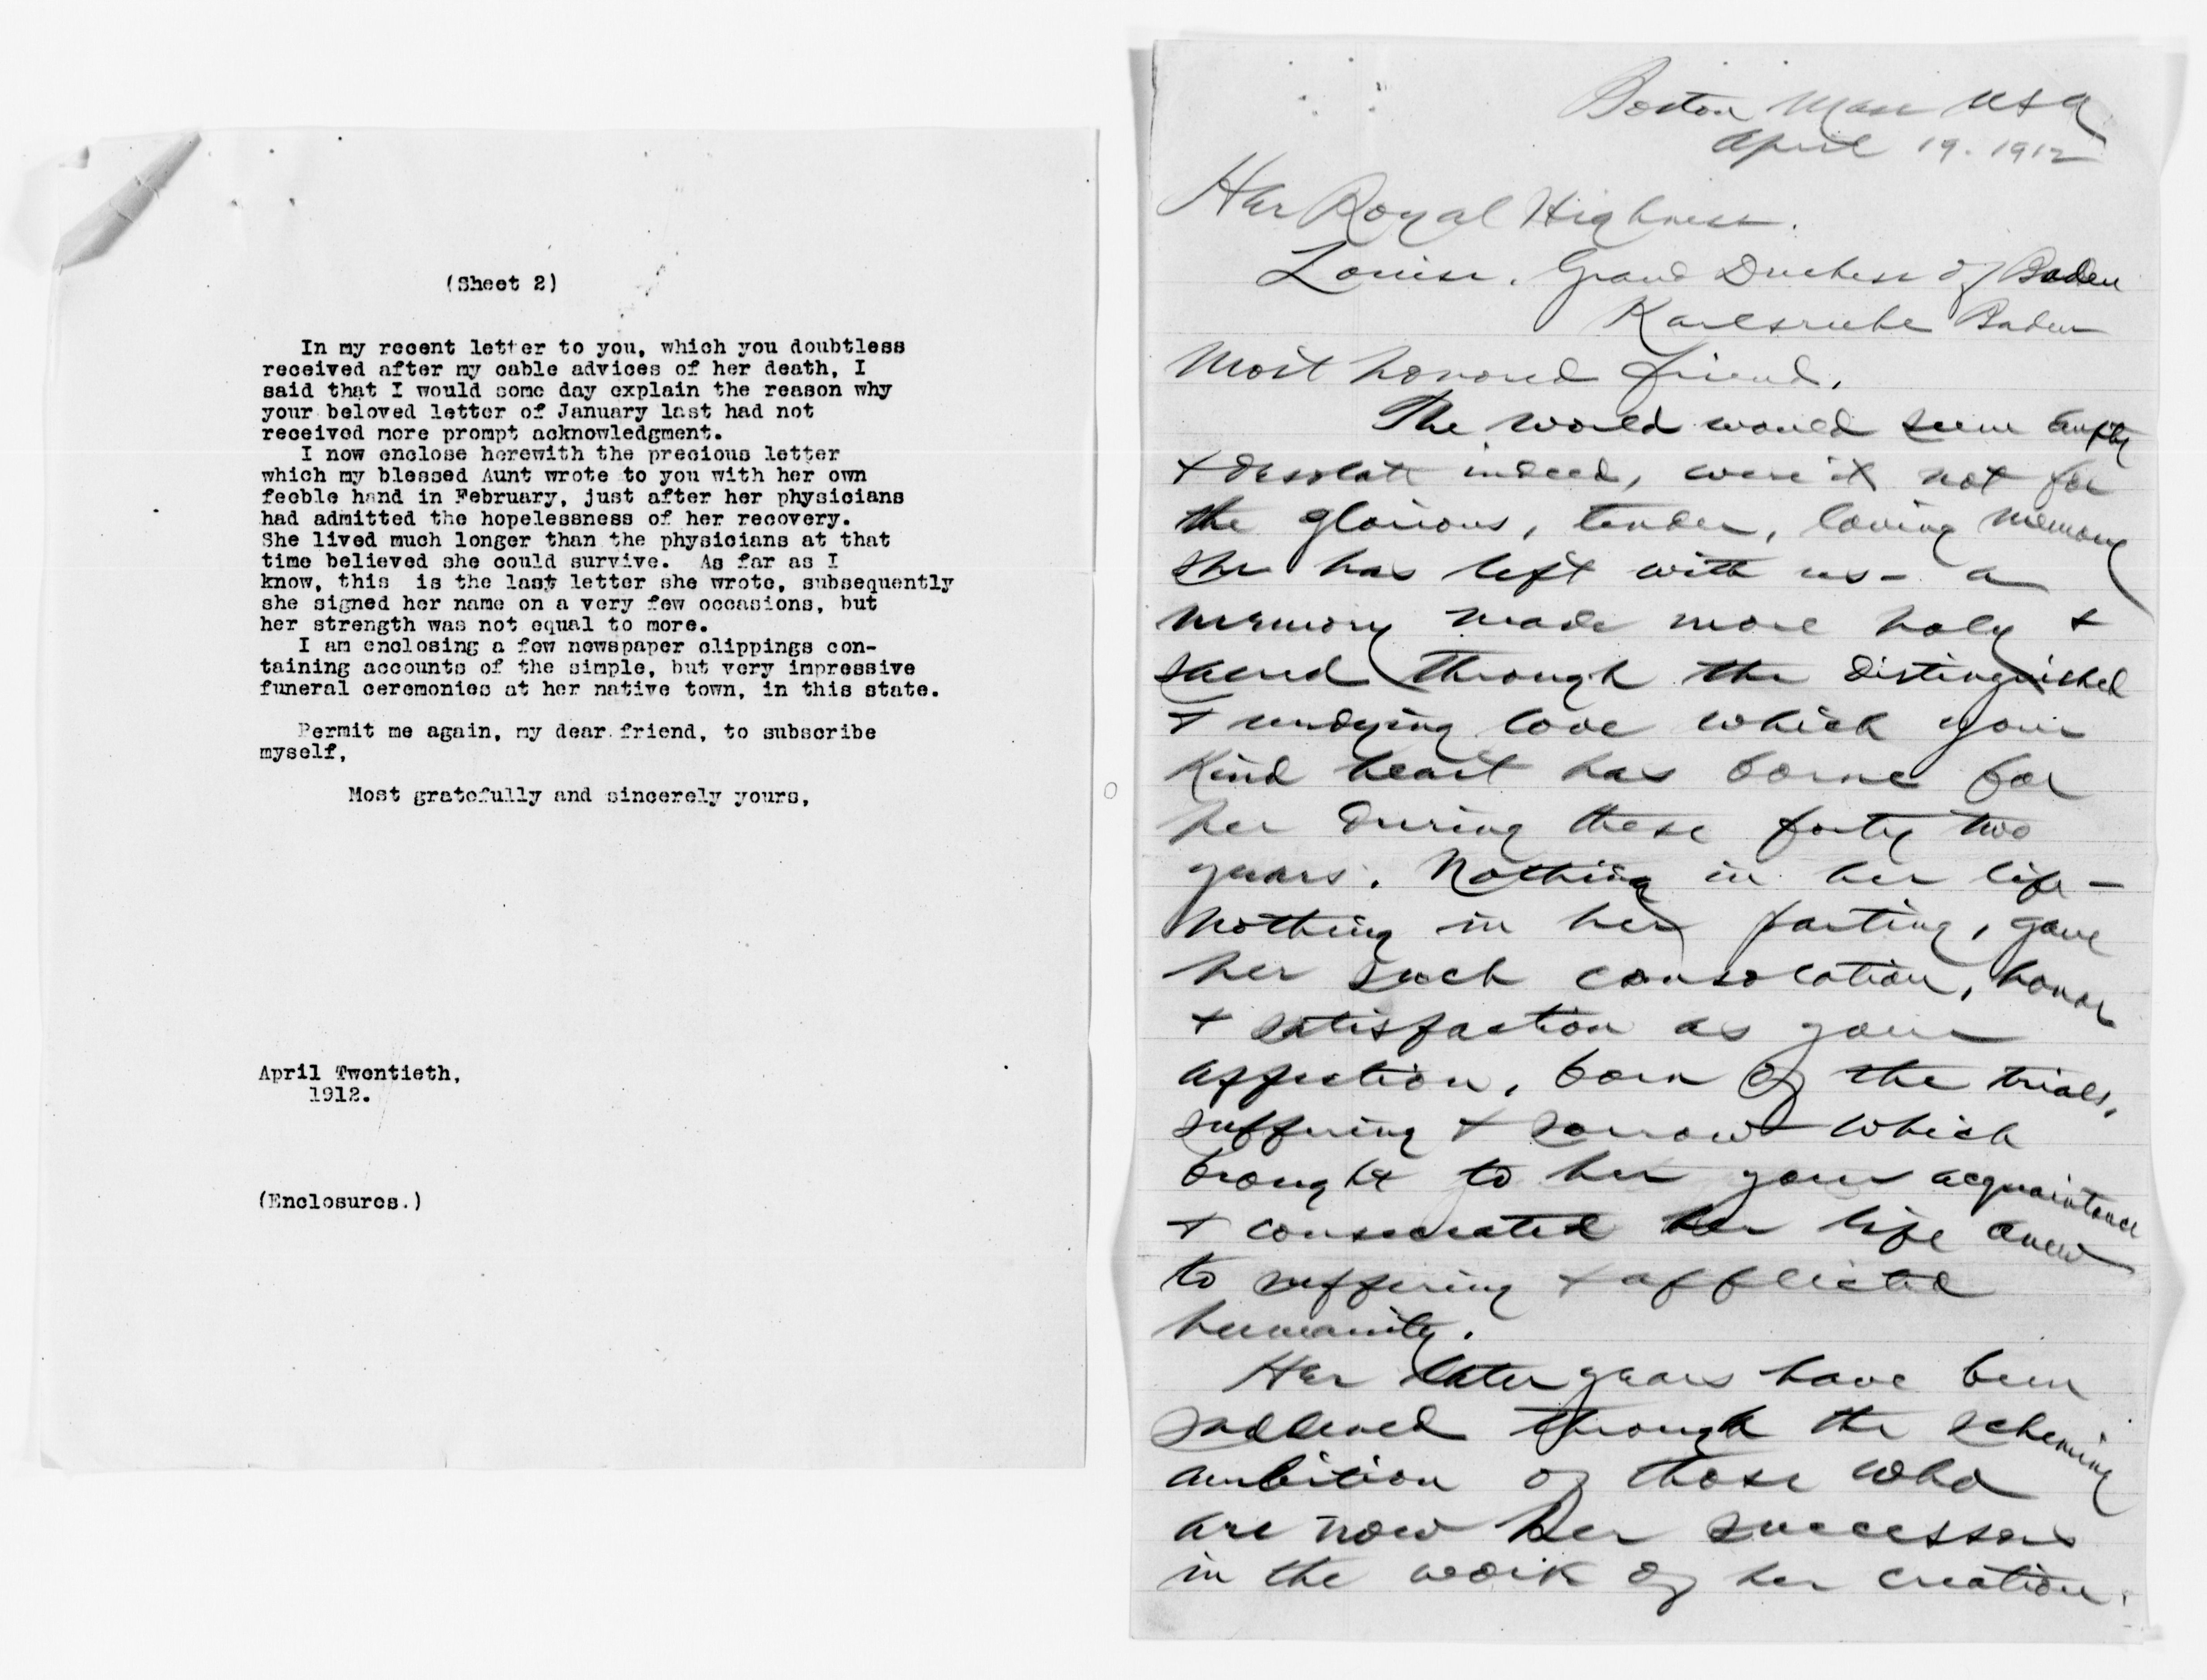 (Sheet 2)
In my recent letter to you, which you doubtless
received after my cable advices of her death, I
said that I would some day explain the reason why
your beloved letter of January last had not
received more prompt acknowledgment.
I now enclose herewith the precious letter
which my blessed Aunt wrote to you with her own
feeble hand in February, just after her physicians
had admitted the hopelessness of her recovery.
She lived much longer than the physicians at that
time believed she could survive. As far as I
know, this is the last letter she wrote, subsequently
she signed her name on a very few occasions, but
her strength was not equal to more.
I am enclosing a few newspaper clippings con-
taining accounts of the simple, but very impressive
funeral ceremonies at her native town, in this state.
Permit me again, my dear friend, to subscribe
myself,
Most gratefully and sincerely yours,
April Twentieth,
1912.
(Enclosures.)
Boston Mass USA
April 19. 1912
Her Royal Highness.
Louise. Grand Duchess of Baden
Karlsruhe Baden
Most honored friend,
The world would seem empty
& desolate indeed, were it not for
the glorious, tender, loving memory
she has left with us - a
memory made more holy &
sacred through the distinguished
& undying love which your
kind heart has borne for
her during these forty two
years. Nothing in her life -
nothing in her parting, gave
her such consolation, honor
& satisfaction as your
affection, born of the trials,
suffering & sorrow which
brought to her your acquaintance
& consecrated her life anew
to suffering & afflicted
humanity.
Her later years have been
saddened through the scheming
ambition of those who
are now her successors
in the work of her creation.